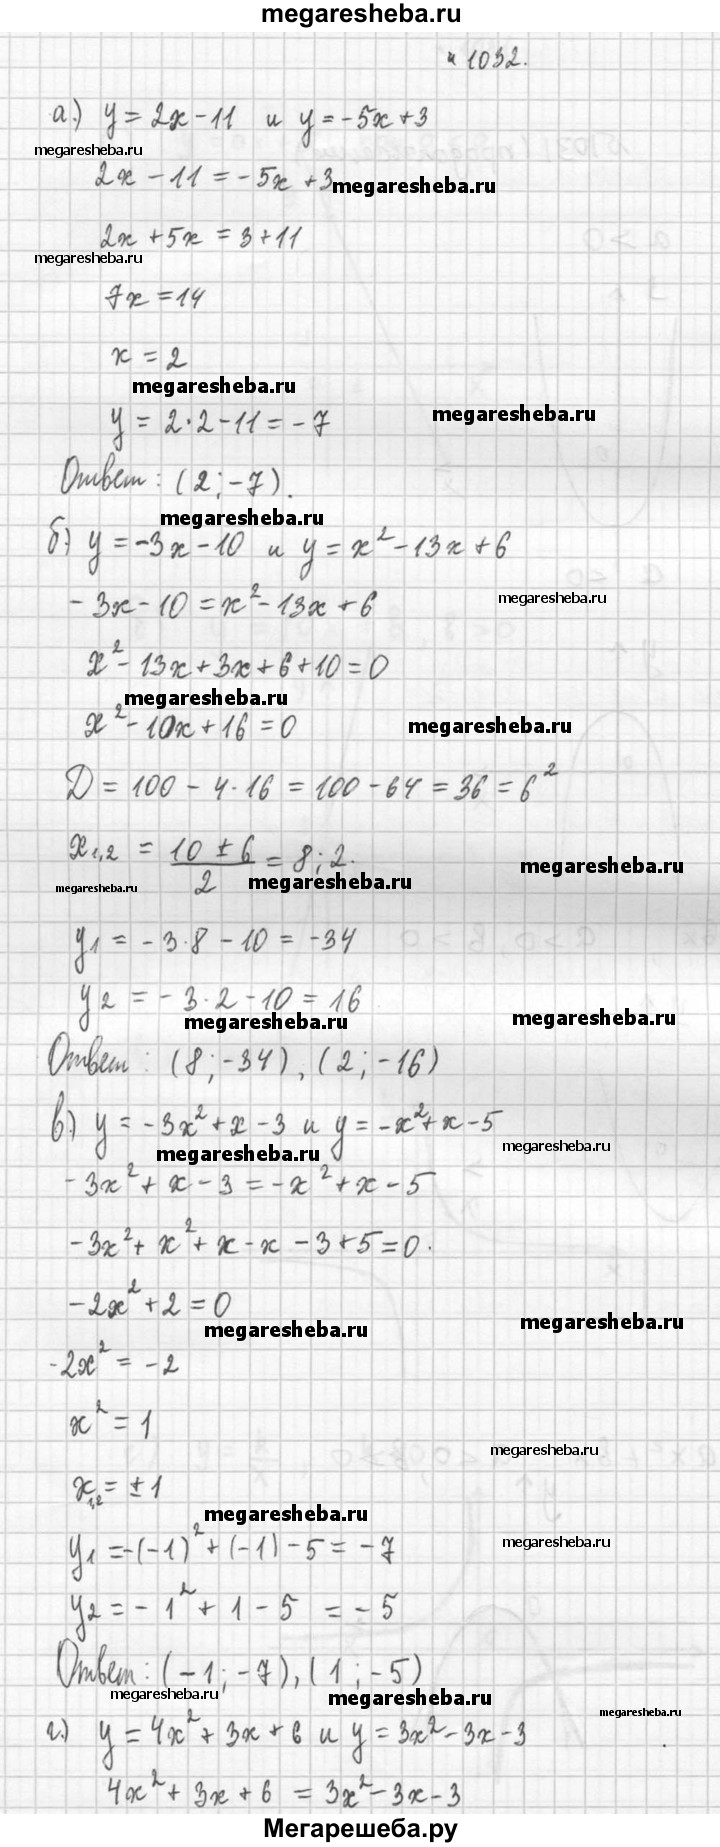 megaresheba.ru
№ 1032.
а) y = 2x - 11 и y = -5x + 3
megaresheba.ru
2x - 11 = -5x + 3
megaresheba.ru
2x + 5x = 3 + 11
megaresheba.ru
7x = 14
x = 2
megaresheba.ru
megaresheba.ru
y = 2·2 - 11 = -7
Ответ: (2; -7).
megaresheba.ru
б) y = -3x - 10 и y = x² - 13x + 6
-3x - 10 = x² - 13x + 6
megaresheba.ru
x² - 13x + 3x + 6 + 10 = 0
megaresheba.ru
x² - 10x + 16 = 0
megaresheba.ru
D = 100 - 4·16 = 100 - 64 = 36 = 6²
x₁,₂ = (10 ± 6)/2 = 8; 2.
megaresheba.ru
megaresheba.ru
megaresheba.ru
y₁ = -3·8 - 10 = -34
y₂ = -3·2 - 10 = 16
megaresheba.ru
megaresheba.ru
Ответ: (8; -34), (2; -16)
в) y = -3x² + x - 3 и y = -x² + x - 5
megaresheba.ru
megaresheba.ru
-3x² + x - 3 = -x² + x - 5
-3x² + x² + x - x - 3 + 5 = 0.
-2x² + 2 = 0
megaresheba.ru
megaresheba.ru
-2x² = -2
x² = 1
megaresheba.ru
x₁,₂ = ±1
megaresheba.ru
y₁ = -(-1)² + (-1) - 5 = -7
megaresheba.ru
y₂ = -1² + 1 - 5 = -5
Ответ: (-1; -7), (1; -5)
megaresheba.ru
megaresheba.ru
megaresheba.ru
г) y = 4x² + 3x + 6 и y = 3x² - 3x - 3
4x² + 3x + 6 = 3x² - 3x - 3
Мегарешеба.ру